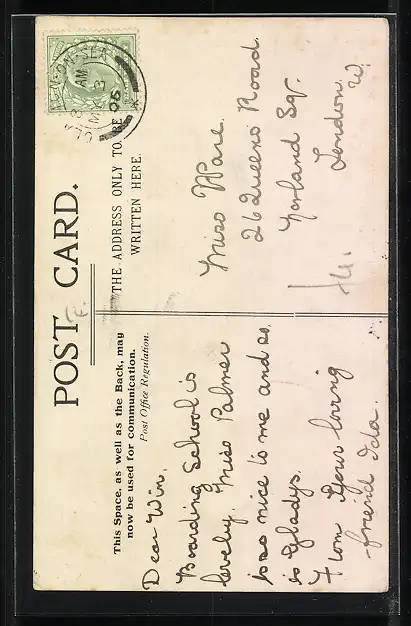 POST CARD.
This Space, as well as the Back, may
now be used for communication.
Post Office Regulation.
THE ADDRESS ONLY TO BE
WRITTEN HERE.
Dear Win,
Boarding School is
lovely. Miss Palmer
is so nice to me and so
is Gladys.
From Your loving
friend Ida.
Miss Ware.
26 Queens Road.
Norland Sqr.
London.
W.